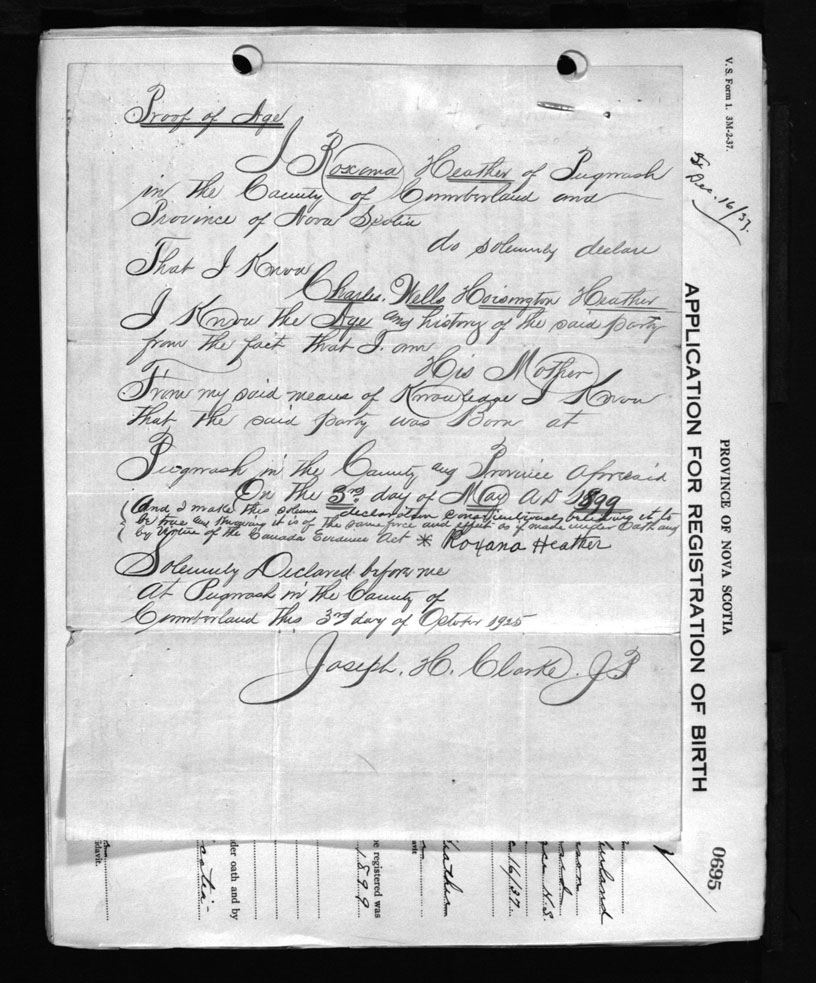 Proof of Age
I Roxana Heather of Pugwash
in the County of Cumberland and
Province of Nova Scotia
do solemnly declare
That I Know
Charles Wells Hoisington Heather
I Know the Age and history of the said party
from the fact that I am
His Mother
From my said means of Knowledge I Know
that the said party was Born at
Pugwash in the County and Province aforesaid
On the 3rd day of May A.D 1899
And I make this solemn declaration conscientiously believing it to
be true and knowing it is of the same force and effect as if made under Oath and
by Virtue of the Canada Evidence Act * Roxana Heather
Solemnly Declared before me
At Pugwash in the County of
Cumberland this 3rd day of October 1925
Joseph. H. Clarke. J P
V. S. Form 1. 3M-2-37.
Dec. 16/37.
PROVINCE OF NOVA SCOTIA
APPLICATION FOR REGISTRATION OF BIRTH
0695
N.S.
16/37
be registered was
1899
der oath and by
cotia-
idavit.